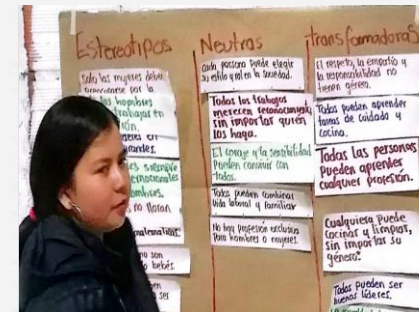 Estereotipos
Solo las mujeres deben
preocuparse por la
los hombres
trabajar en
grandes.
siempre
no lloran
matemáticas.
no son
bebés.
ser
Neutras
cada persona puede elegir
su estilo y rol en la sociedad.
Todos los trabajos
merecen reconocimiento,
sin importar quien
los haga.
El coraje y la sensibilidad
Pueden convivir con
todos.
Todos pueden combinar
vida laboral y familiar
No hay profesión exclusiva
Para hombres o mujeres.
transformadoras
El respeto, la empatía y
la responsabilidad no
tienen género.
Todos pueden aprender
tareas de cuidado y
cocina.
Todas las personas
Pueden aprender
cualquier profesión.
Cualquiera Puede
Cocinar y limpiar,
sin importar su
género.
Todos pueden ser
buenos líderes,